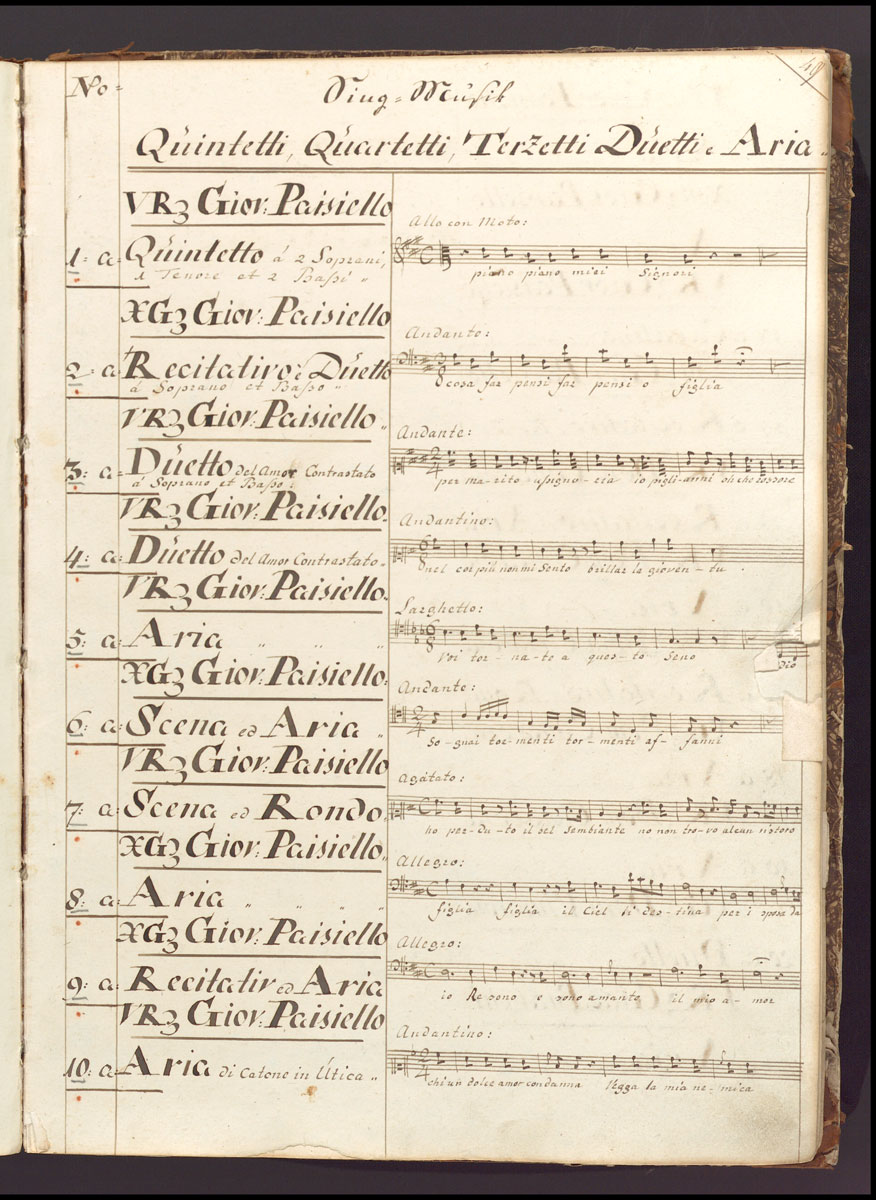 No= Sing=Musik 49
Quintetti, Quartetti, Terzetti Duetti e Aria
VR3 Giov: Paisiello
Allo con Moto:
1: a Quintetto á 2 Soprani,
1 Tenore et 2 Baßi "
piano piano miei Signori
XG3 Giov: Paisiello
Andante:
2 a Recitativo è Duetto
á Soprano et Baßo "
cosa far pensi far pensi o figlia
VR3 Giov: Paisiello
Andante:
3: a Duetto del Amor Contrastato
á Soprano et Baßo:
per ma-rito
VR3 Giov: Paisiello
Andantino:
4: a Duetto del Amor Contrastato
nel cor più non mi sento brillar la gioven-tu.
VR3 Giov: Paisiello
Larghetto:
5: a Aria " " "
Voi tor-na-te a ques-to seno Dio
XG3 Giov: Paisiello
Andante:
6: a Scena ed Aria "
So-gnai tormenti tor-menti af-fanni
VR3 Giov: Paisiello
Agátato:
7: a Scena ed Rondo
ho per-du-to il bel sembiante no non tro-vo alcun ristoro
XG3 Giov: Paisiello
Allegro:
8: a Aria " " " "
figlia figlia il Ciel ti des-tina per i sposa da
XG3 Giov: Paisiello
Allegro:
9: a Recitativ ed Aria
io Re sono e sono amante il mio a-mor
VR3 Giov: Paisiello
Andantino:
10: a Aria di Catone in Útica "
chi un dolce amor condanna Vegga la mia ne-mica